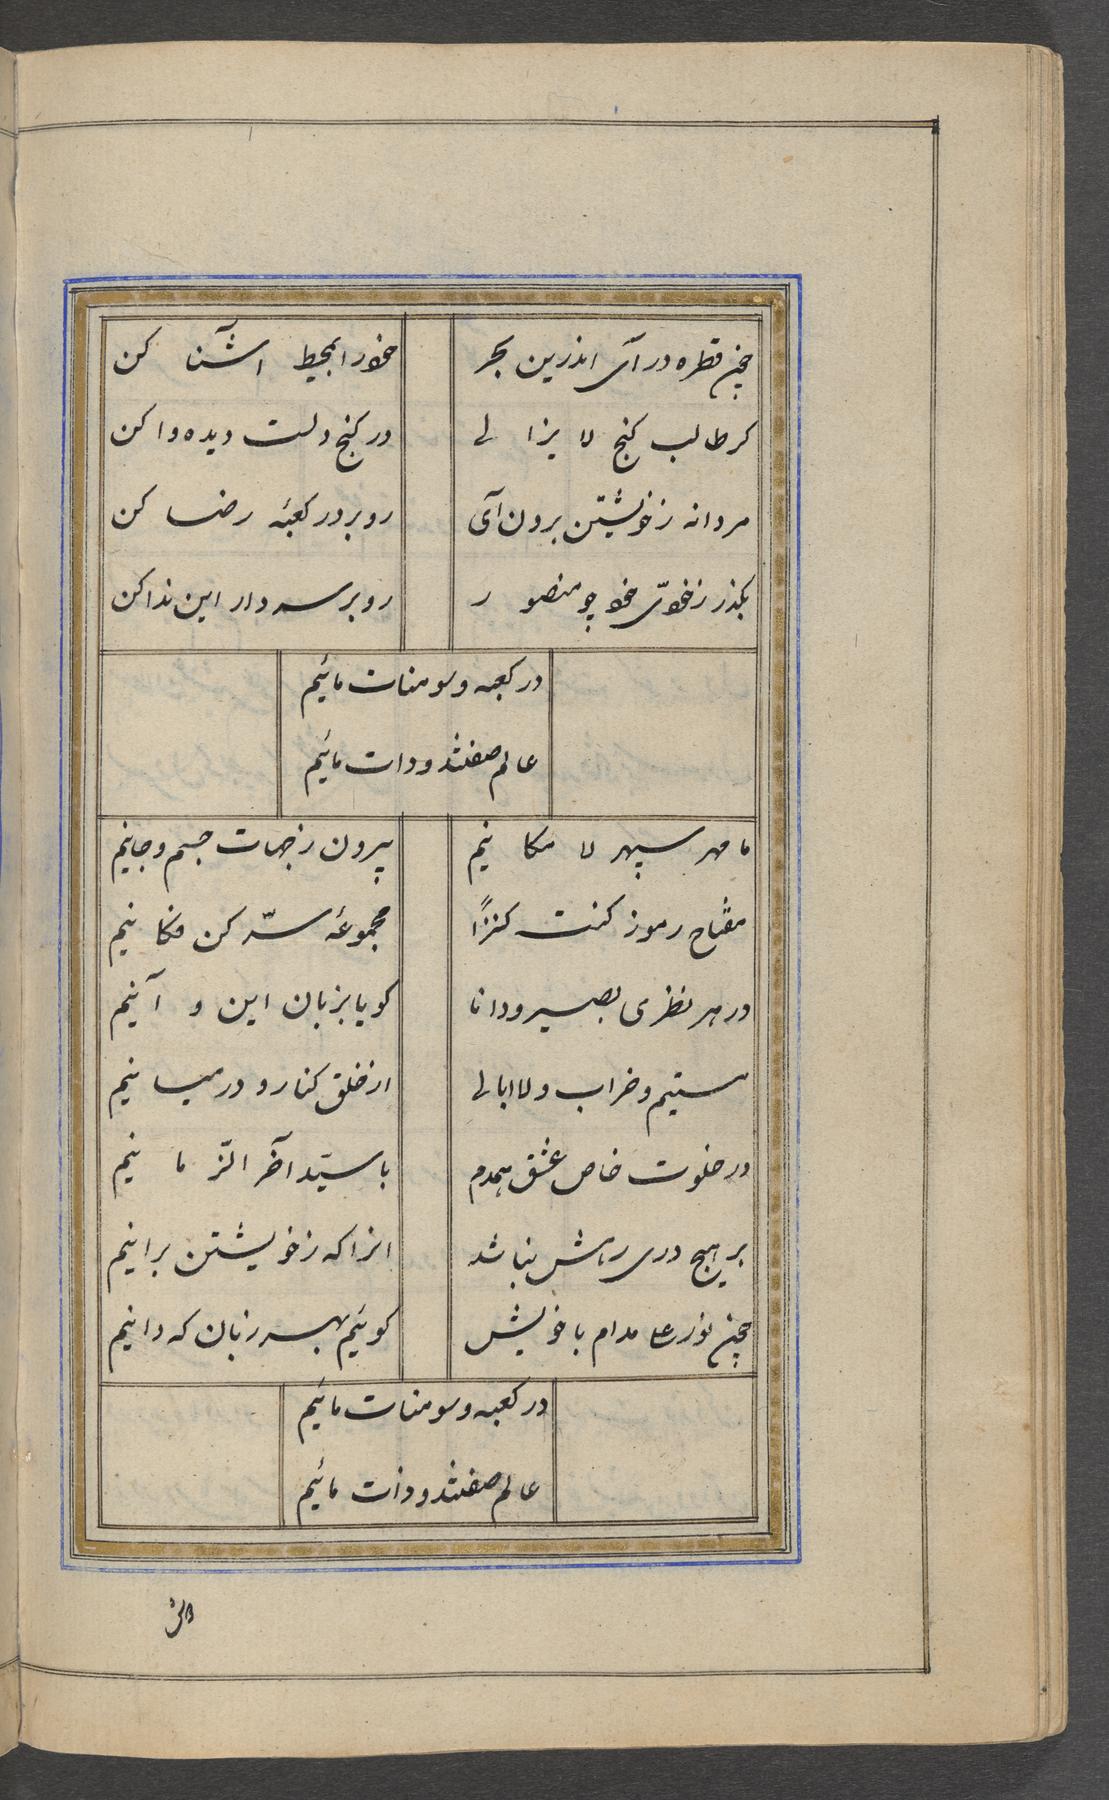 چون قطره در آی اندرین بحر
خود را بمحیط آشنا کن
کر طالب کنج لا یزالی
در کنج دلت دیده وا کن
مردانه زخویشتن برون آی
رو بر در کعبهٔ رضا کن
بکذر زخودی خود چو منصور
رو بر سر دار این ندا کن
در کعبه و سومنات مائیم
عالم صفتند و ذات مائیم
ما مهر سپهر لا مکانیم
بیرون زجهات جسم و جانیم
مفتاح رموز کنت کنزاً
مجموعهٔ سرّ کن فکانیم
در هر نظری بصیر و دانا
کویا بزبان این و آنیم
مستیم و خراب و لاابالی
از خلق کنار و در میانیم
در خلوت خاص عشق همدم
با سیّد آخر الزّمانیم
بر هیچ دری رهش نباشد
انرا که زخویشتن برانیم
چون نور علی مدام با خویش
کوئیم بهر زبان که دانیم
در کعبه و سومنات مائیم
عالم صفتند و ذات مائیم